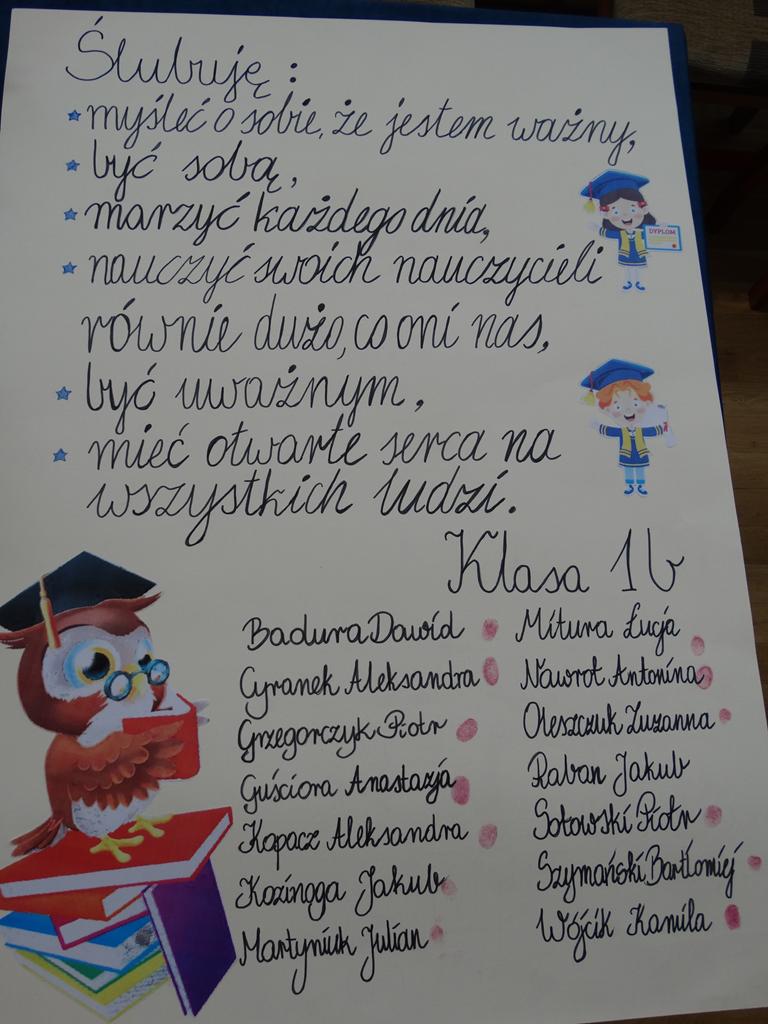 Ślubuję:
myśleć o sobie, że jestem ważny,
być sobą,
marzyć każdego dnia,
nauczyć swoich nauczycieli
równie dużo, co oni nas,
być uważnym,
mieć otwarte serca na
wszystkich ludzi.
DYPLOM
Klasa 1b
Badura Dawid
Cyranek Aleksandra
Grzegorczyk Piotr
Guściora Anastazja
Kopacz Aleksandra
Kozinoga Jakub
Martyniuk Julian
Mitura Łucja
Nawrot Antonina
Oleszczuk Zuzanna
Raban Jakub
Sotowski Piotr
Szymański Bartłomiej
Wójcik Kamila